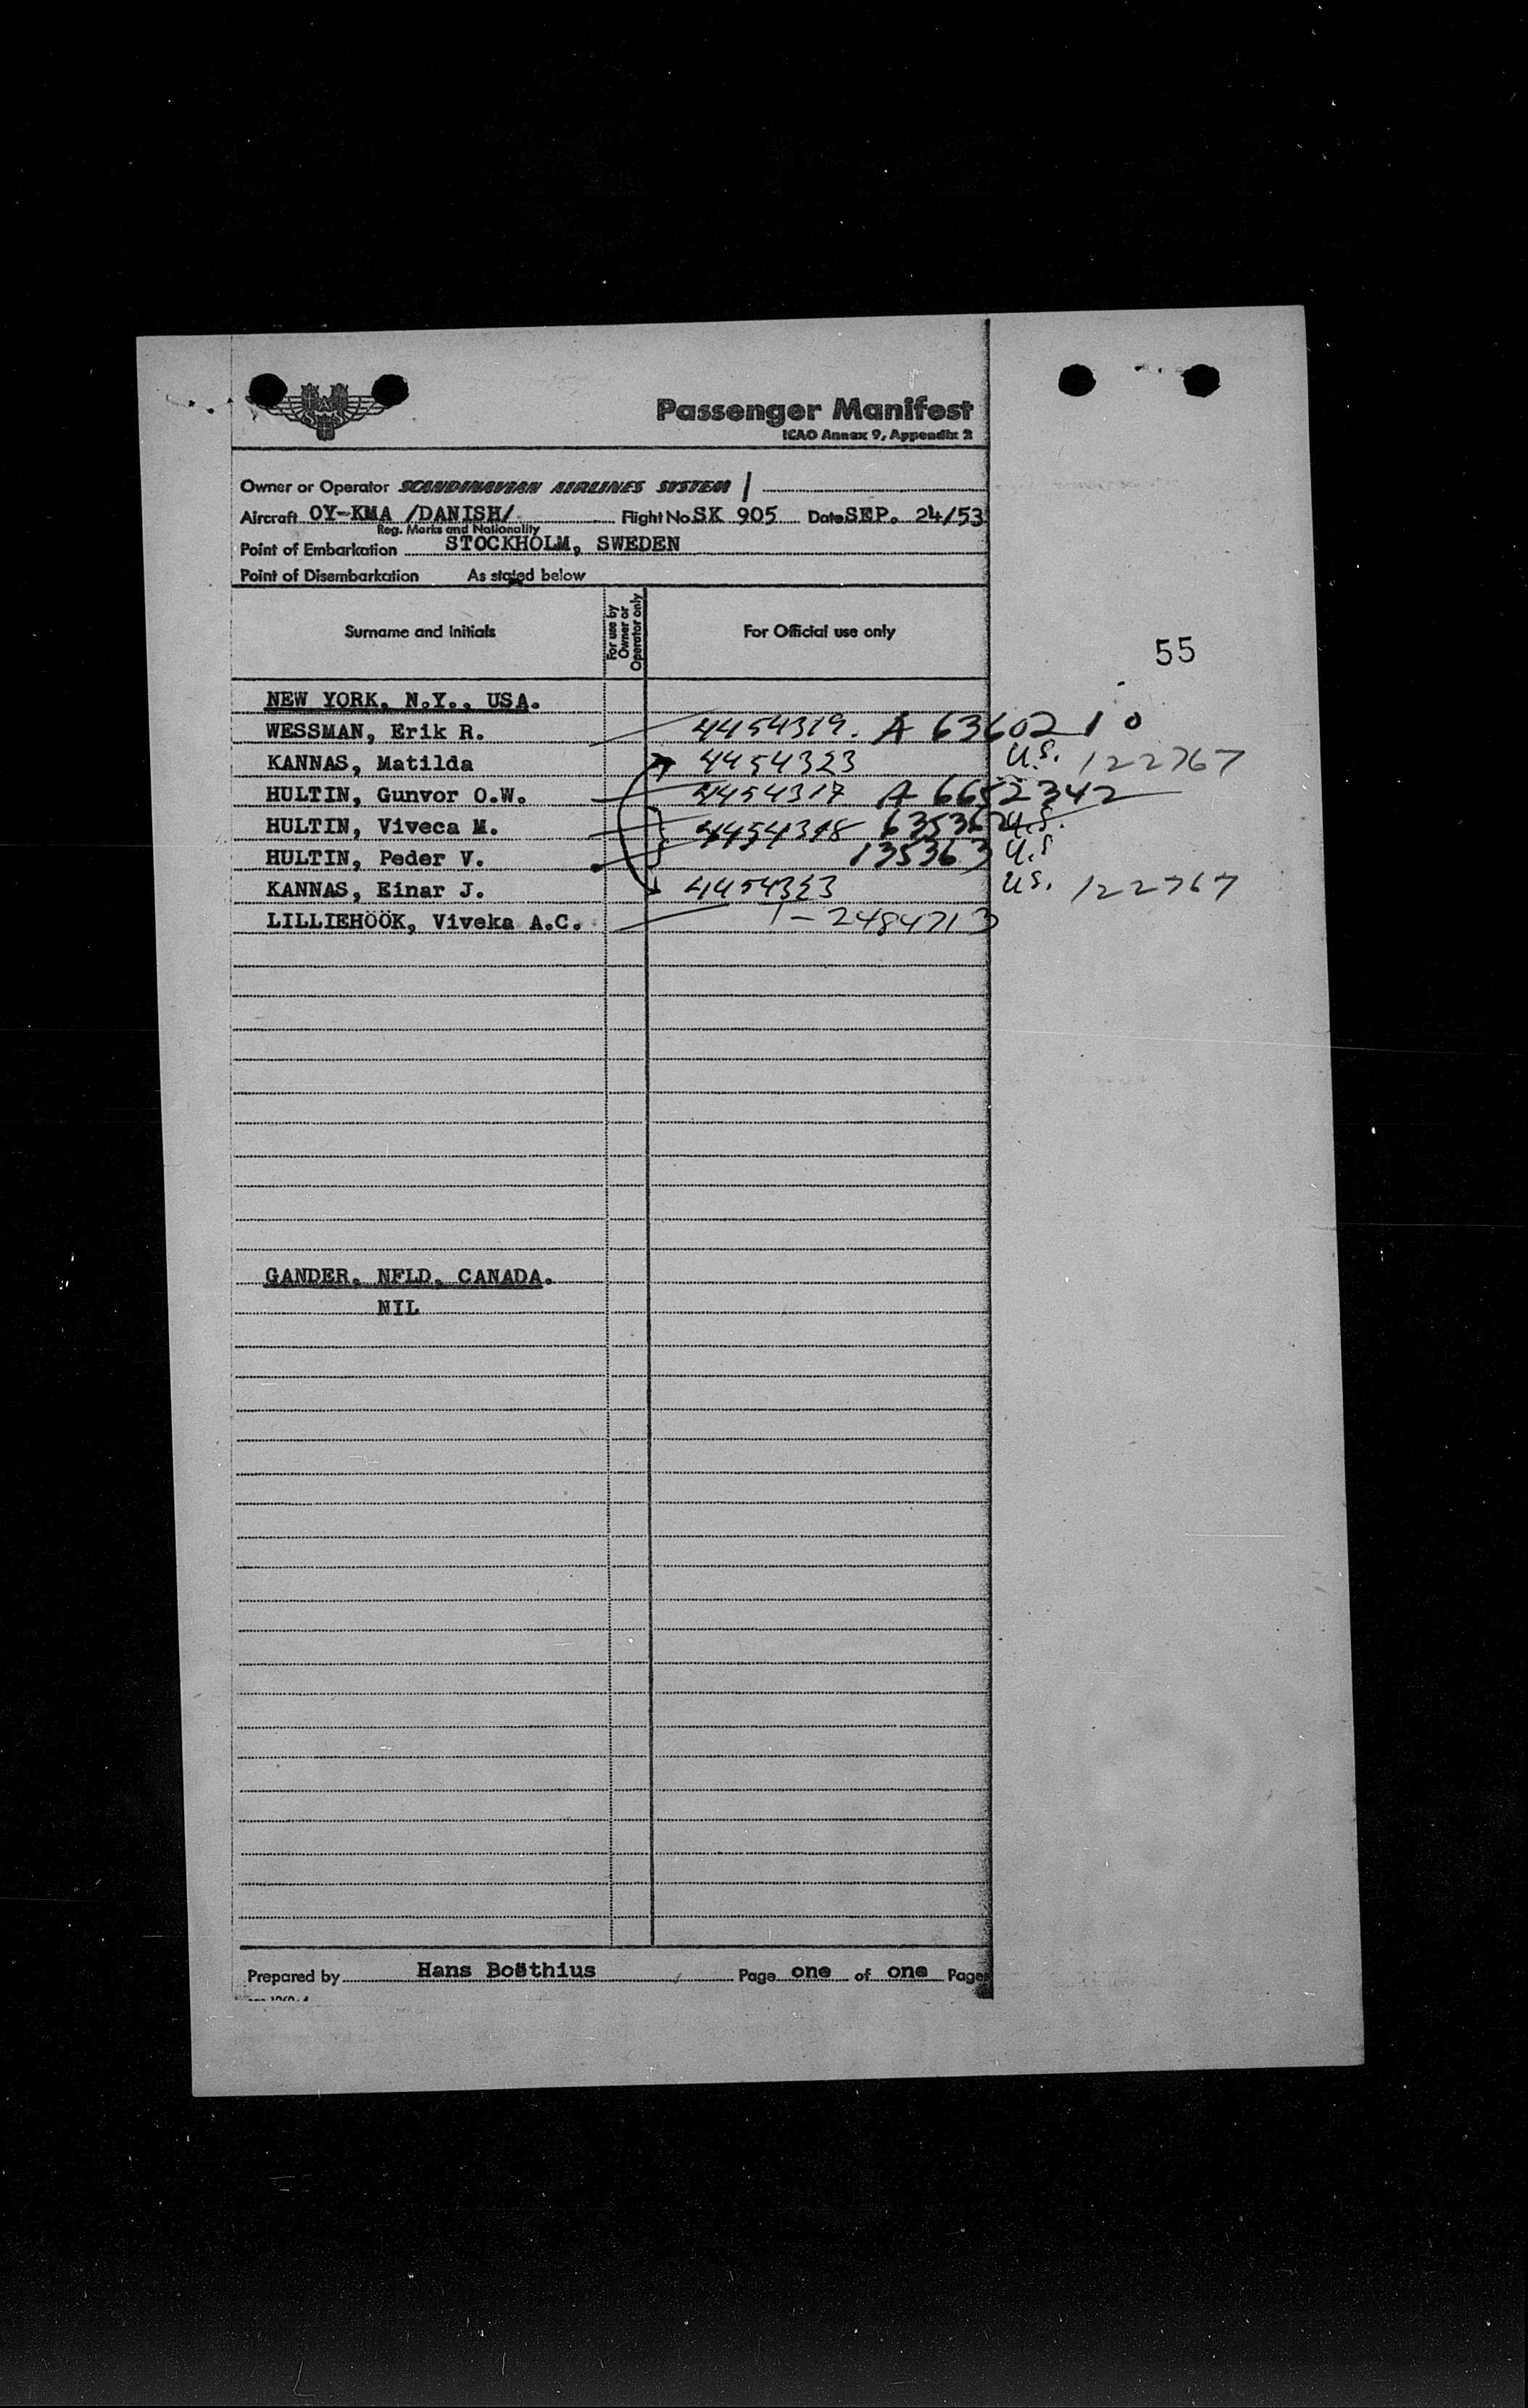 Passenger Manifest
ICAO Annex 9, Appendix 2
Owner or Operator SCANDINAVIAN AIRLINES SYSTEM
Aircraft OY-KMA /DANISH/ Flight No. SK 905 Date SEP. 24/53
Reg. Marks and Nationality
Point of Embarkation STOCKHOLM, SWEDEN
Point of Disembarkation As stated below
Surname and Initials For use by Owner or Operator only For Official use only
55
NEW YORK, N.Y., USA.
WESSMAN, Erik R. 4454319. A 6360210
KANNAS, Matilda 4454323 U.S. 122767
HULTIN, Gunvor O.W. 4454317 A 6652342
HULTIN, Viveca M. 4454318 635362 U.S.
HULTIN, Peder V. 135363 U.S
KANNAS, Einar J. 4454323 U.S. 122767
LILLIEHÖÖK, Viveka A.C. T-2484713
GANDER, NFLD, CANADA.
NIL
Prepared by Hans Boëthius Page one of one Pages